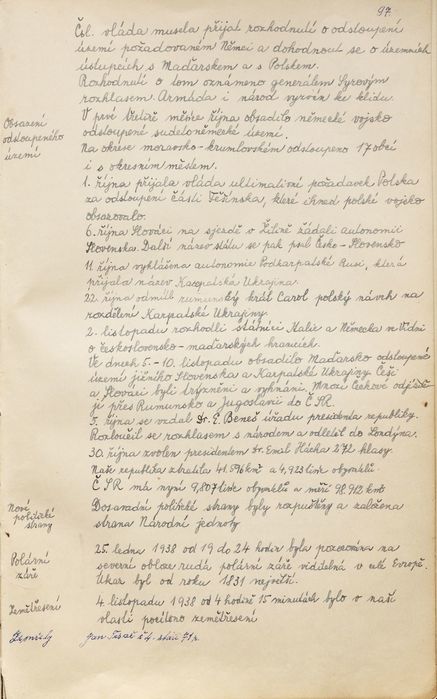 97.
Čsl. vláda musela přijat rozhodnutí o odstoupení
území požadovaném Němci a dohodnout se o územních
ústupcích s Maďarskem a s Polskem.
Rozhodnutí o tom oznámeno generálem Syrovým
rozhlasem. Armáda i národ vyzván ke klidu.
Obsazení
odstoupeného
území
V prvé čtvrti měsíce října obsadilo německé vojsko
odstoupené sudetoněmecké území.
Na okrese moravsko-krumlovském odstoupeno 17 obcí
i s okresním městem.
1. října přijala vláda ultimativní požadavek Polska
za odstoupení části Těšínska, které ihned polské vojsko
obsazovalo.
6. října Slováci na sjezdě v Žilině žádali autonomii
Slovenska. Další název státu se pak psal Česko-Slovensko
11. října vyhlášena autonomie Podkarpatské Rusi, která
přijala název Karpatská Ukrajina.
22. října odmítl rumunský král Carol polský návrh na
rozdělení Karpatské Ukrajiny.
2. listopadu rozhodli státníci Italie a Německa ve Vídni
o československo-maďarských hranicích.
Ve dnech 5.-10. listopadu obsadilo Maďarsko odstoupené
území jižního Slovenska a Karpatské Ukrajiny. Češi
a Slováci byli trýzněni a vyháněni. Mnozí Čechové
je přes Rumunsko a Jugoslavii do ČSR.
5. října se vzdal Dr. E. Beneš úřadu presidenta republiky.
Rozloučil se rozhlasem s národem a odletěl do Londýna.
30. října zvolen presidentem Dr. Emil Hácha 272 hlasy.
Naše republika ztratila 41.596 km² a 4,923 tisíc obyvatelů.
Č S R má nyní 9,807 tisíc obyvatelů a měří 98.912 km²
Nové
politické
strany
Dosavadní politické strany byly rozpuštěny a založena
strana Národní jednoty
Polární
záře
25. ledna 1938 od 19 do 24 hodin byla pozorována na
severní obloze rudá polární záře viditelná v celé Evropě.
Úkaz byl od roku 1831 největší.
Zemětřesení
4. listopadu 1938 od 4 hodině 15 minutách bylo v naší
vlasti pocíteno zemětřesení
Zemřelý
Jan č 4. stáří 71 r.